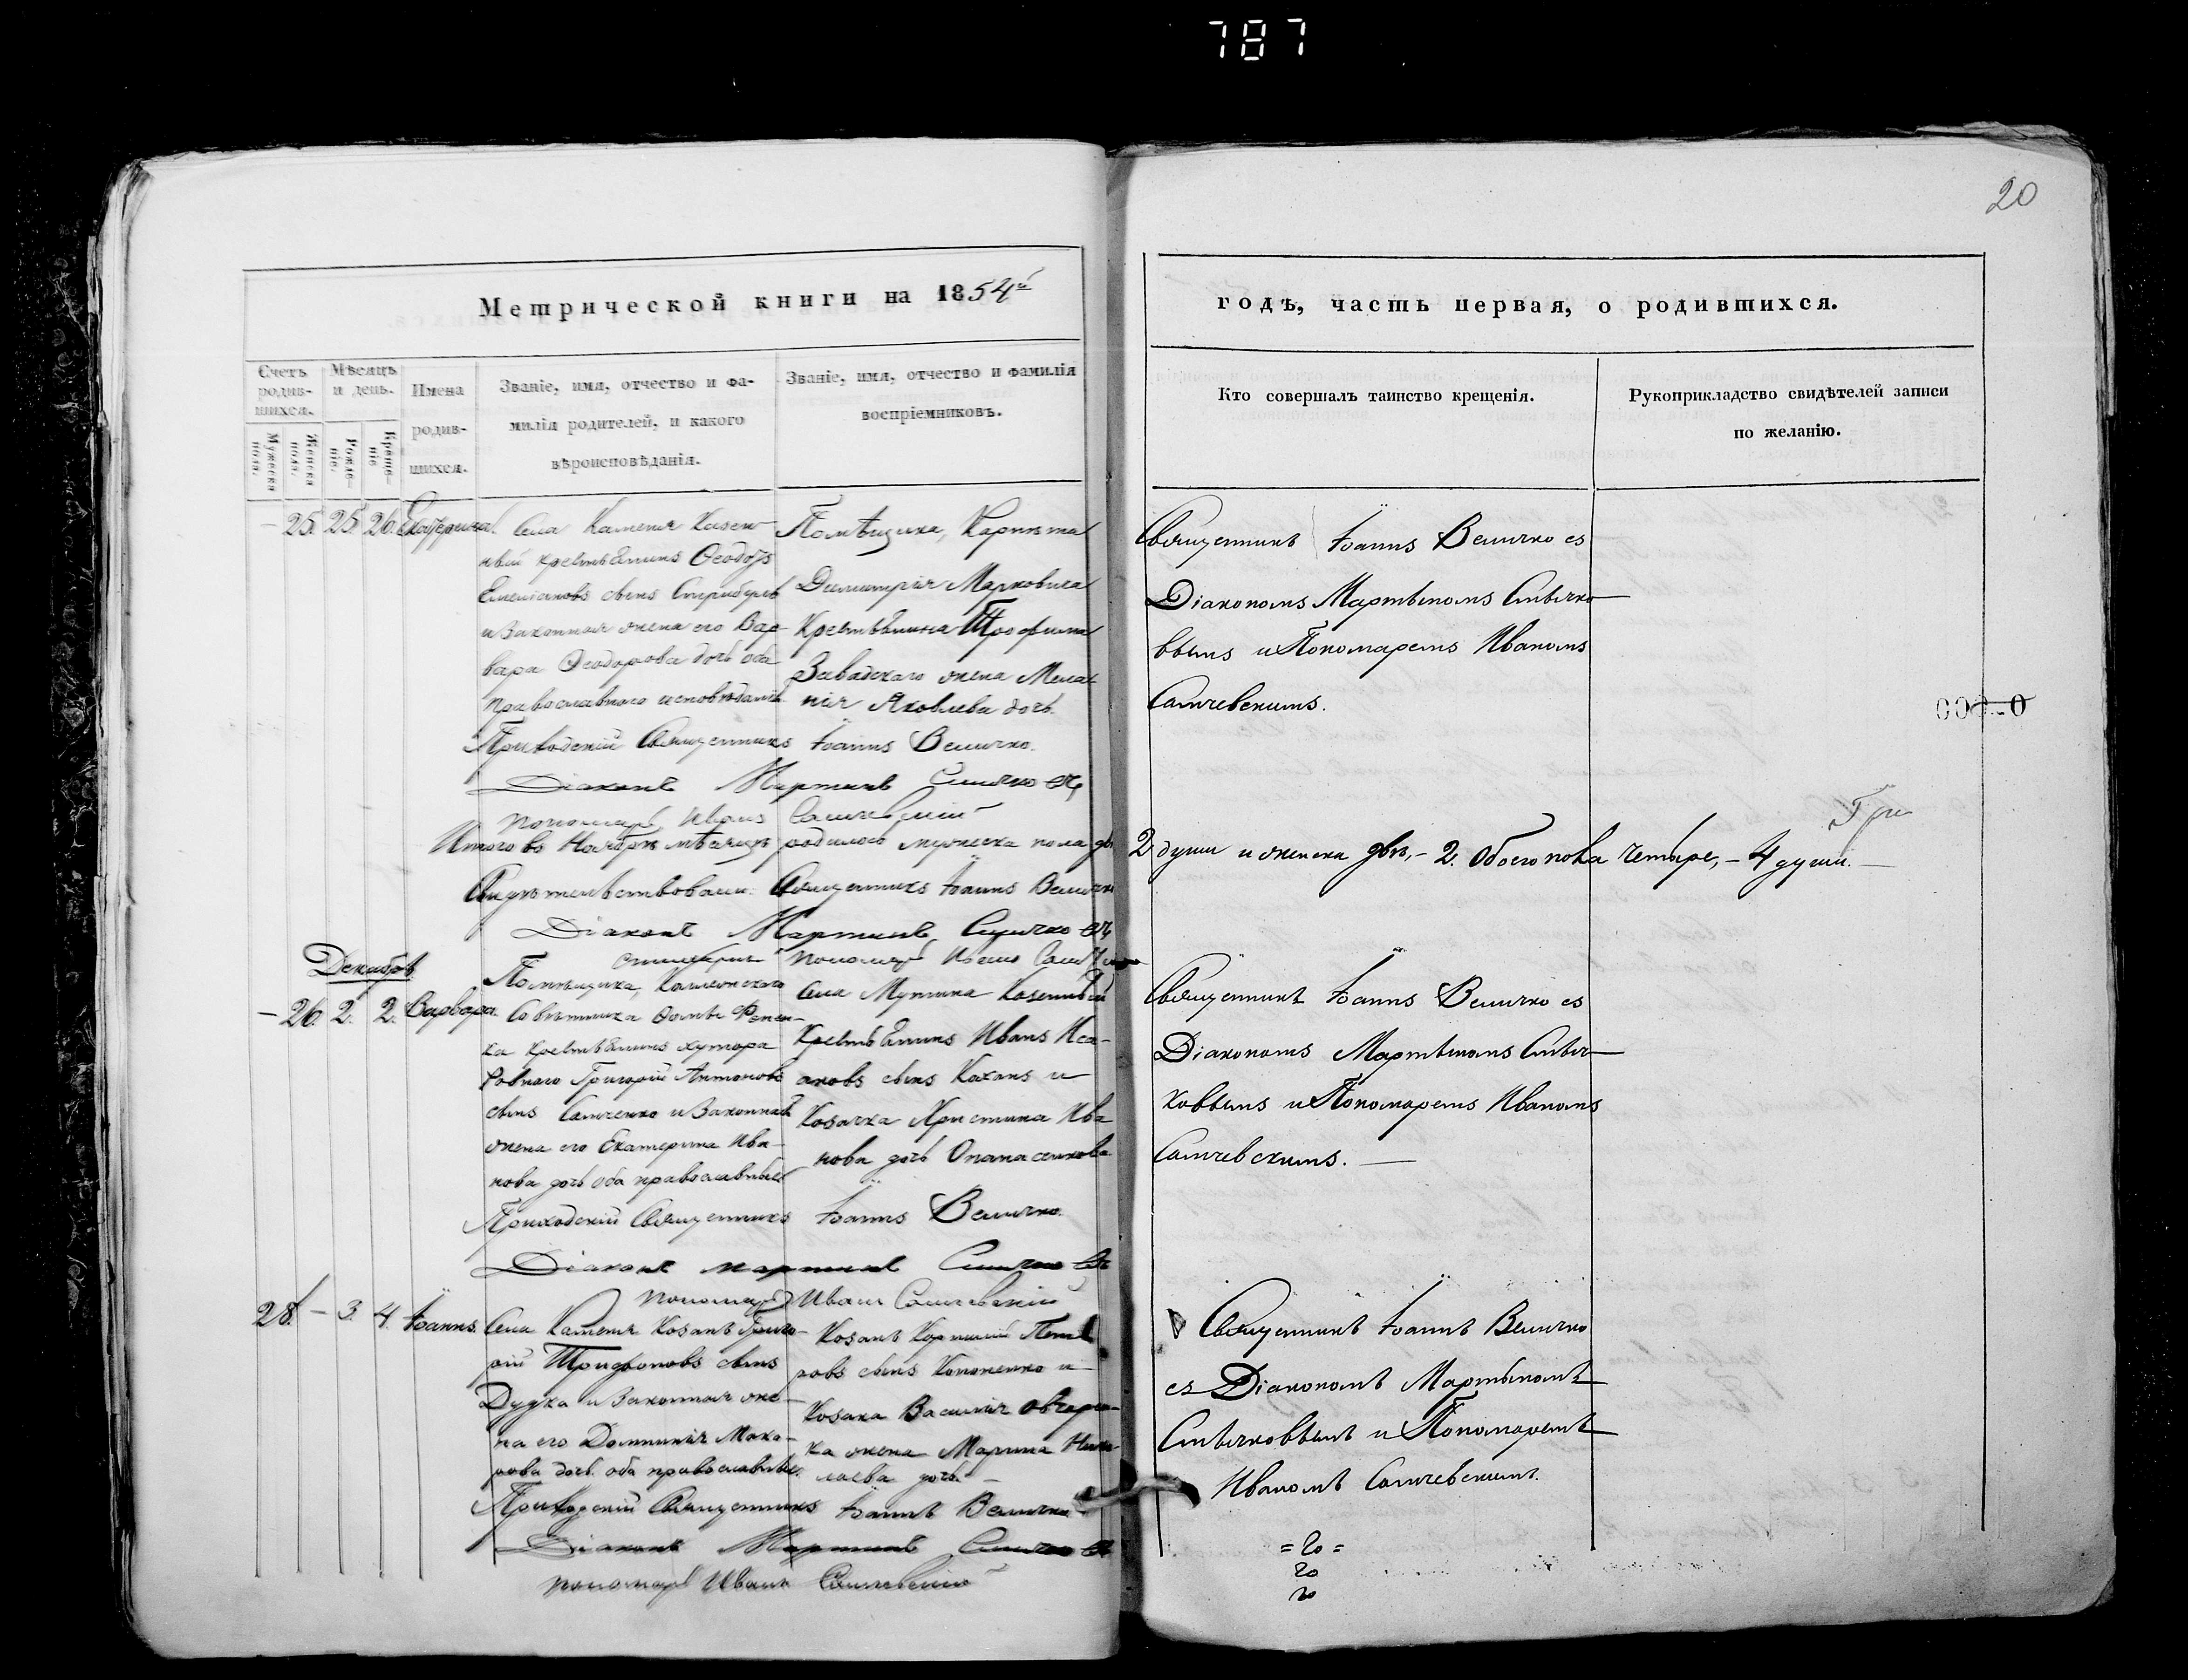 787
20
Метрической книги на 1854й
годѣ, часть первая, о родившихся.
Счетъ родив-шихся.
Мѣсяцъ и день.
Имена родив-шихся.
Званіе, имя, отчество и фа-
милія родителей, и какого
вѣроисповѣданія.
Званіе, имя, отчество и фамилія
воспріемниковъ.
Мужеска пола.
Женска пола.
Рожде-ніе.
Креще-ніе
Кто совершалъ таинство крещенія.
Рукоприкладство свидѣтелей записи
по желанію.
— 25. 25 26. Екатерина.
Села Каменя Казен-
ный крестьянинъ Ѳеодоръ
Емеліановъ сынъ
и Законная жена его Вар-
вара Ѳеодорова дочь оба
православнаго исповѣданія
Помѣщика, Корнета
Димитрія Марковича
Крестьянина Трофима
Завадскаго жена Мела-
нія Яковлева дочь.
Священникъ Іоаннъ Величко съ
Діакономъ Мартыномъ Слѣчко-
вымъ и Пономаремъ Иваномъ
Самчевскимъ.
Приходскій Священникъ Іоаннъ Величко.
Діаконъ Мартинъ
пономарь Иванъ Самчевскій
Итого въ Ноябрѣ мѣсяцѣ родилось мужеска пола двѣ 2. души и женска двѣ,- 2. Обоего пола четыре,- 4 души. —
Свидѣтельствовали: Священникъ Іоаннъ Величко
Діаконъ Мартинъ
пономарь Иванъ
Декабрь
— 26. 2. 2. Варвара.
Помѣщика, Коллежскаго
Совѣтника Ѳомы
ка крестьянинъ хутора
Ровнаго Григорій Антоновъ
сынъ Самченко и Законная
жена его Екатерина Ива-
нова дочь оба православные
Села Мутина Казенный
Крестьянинъ Иванъ Иса-
аковъ сынъ Коханъ и
Козачка Христина Ива
нова дочь Опанасенкова
Священникъ Іоаннъ Величко съ
Діакономъ Мартыномъ Слѣч-
ковымъ и Пономаремъ Иваномъ
Самчевскимъ. —
Приходскій Священникъ Іоаннъ Величко.
Діаконъ Мартинъ
пономарь Иванъ Самчевскій
28. — 3. 4. Іоаннъ.
Села Каменя Козакъ Григо-
рій Трифоновъ сынъ
Дудка и Законная же-
на его Домникія Мака-
рова дочь. оба православные.
Козакъ Корнилій Пет
ровъ сынъ Кононенко и
Козака Василія Овчарен-
ка жена Марина Нико-
лаева дочь. —
Священникъ Іоаннъ Величко
съ Діакономъ Мартыномъ
Слѣчковымъ и Пономаремъ
Иваномъ Самчевскимъ.
Приходскій Священникъ Іоаннъ Величко
Діаконъ Мартинъ
пономарь Иванъ Самчевскій
= 20 =
20
20